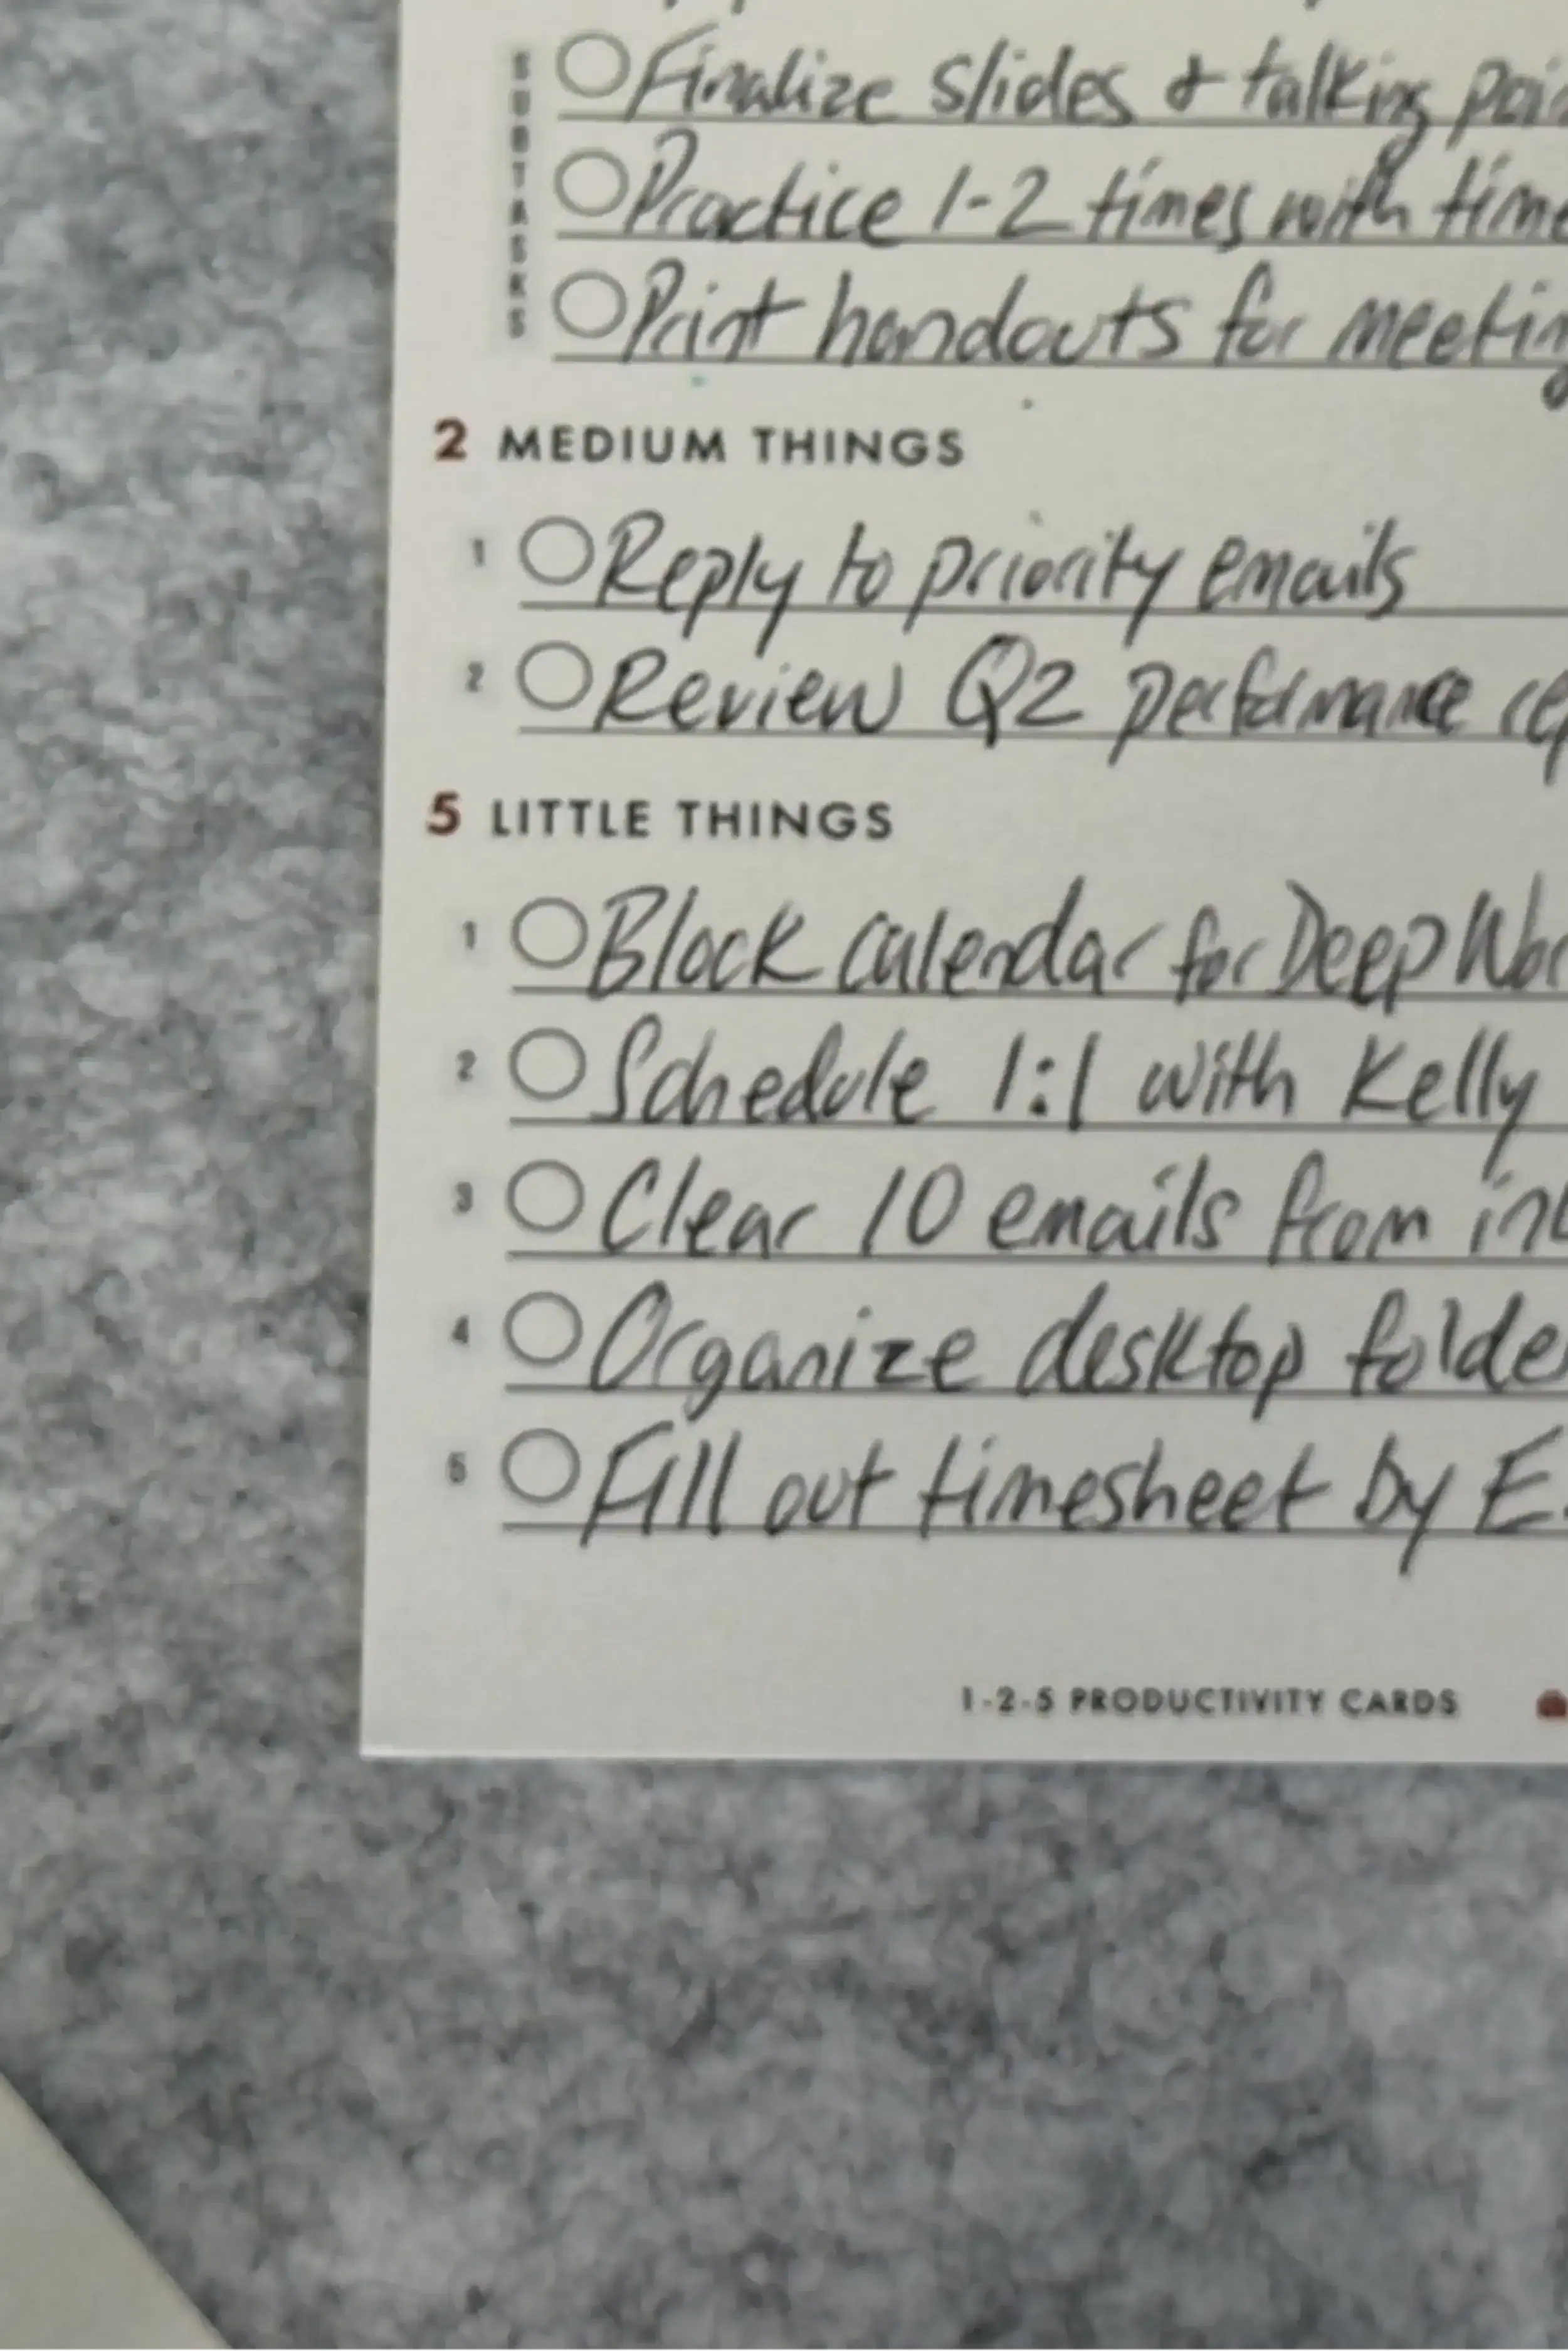 SUBTASKS
Finalize slides & talking poi
Practice 1-2 times with time
Print handouts for meetin
2 MEDIUM THINGS
1 Reply to priority emails
2 Review Q2 performance re
5 LITTLE THINGS
1 Block calendar for Deep Wor
2 Schedule 1:1 with Kelly
3 Clear 10 emails from in
4 Organize desktop folde
5 Fill out timesheet by E.
1-2-5 PRODUCTIVITY CARDS